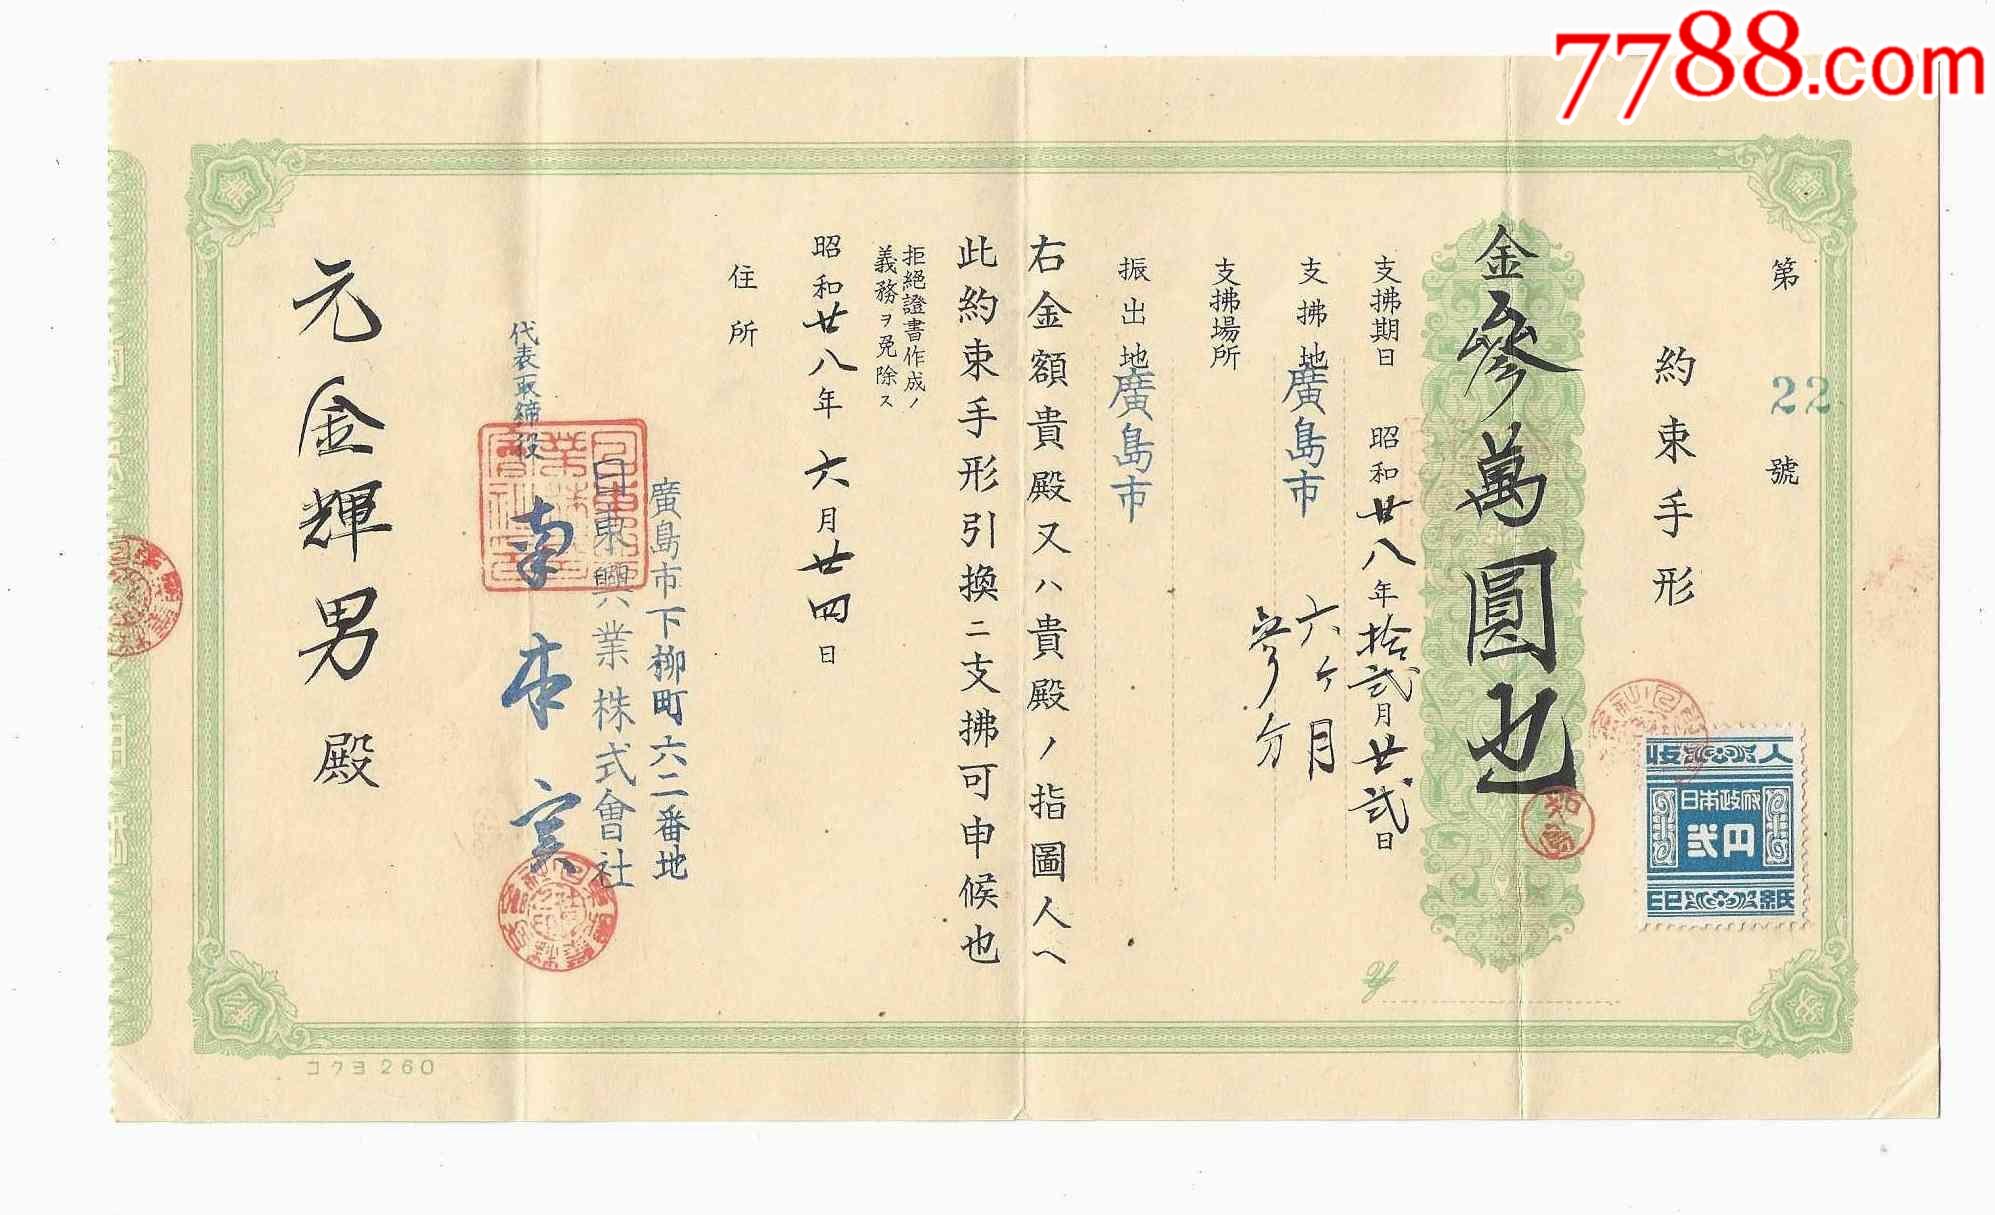 7788.com
第22號
約束手形
金參萬圓也
支拂期日 昭和廿八年拾弐月廿弐日
支拂地 廣島市
六ヶ月
参分
支拂場所
振出地 廣島市
右金額貴殿又ハ貴殿ノ指圖人ヘ
此約束手形引換ニ支拂可申候也
拒絕證書作成ノ
義務ヲ免除ス
昭和廿八年六月廿四日
住所
廣島市下柳町六二番地
日東興業株式會社
代表取締役
南本実
元金輝男殿
収入
日本政府
弐円
印紙
コクヨ260